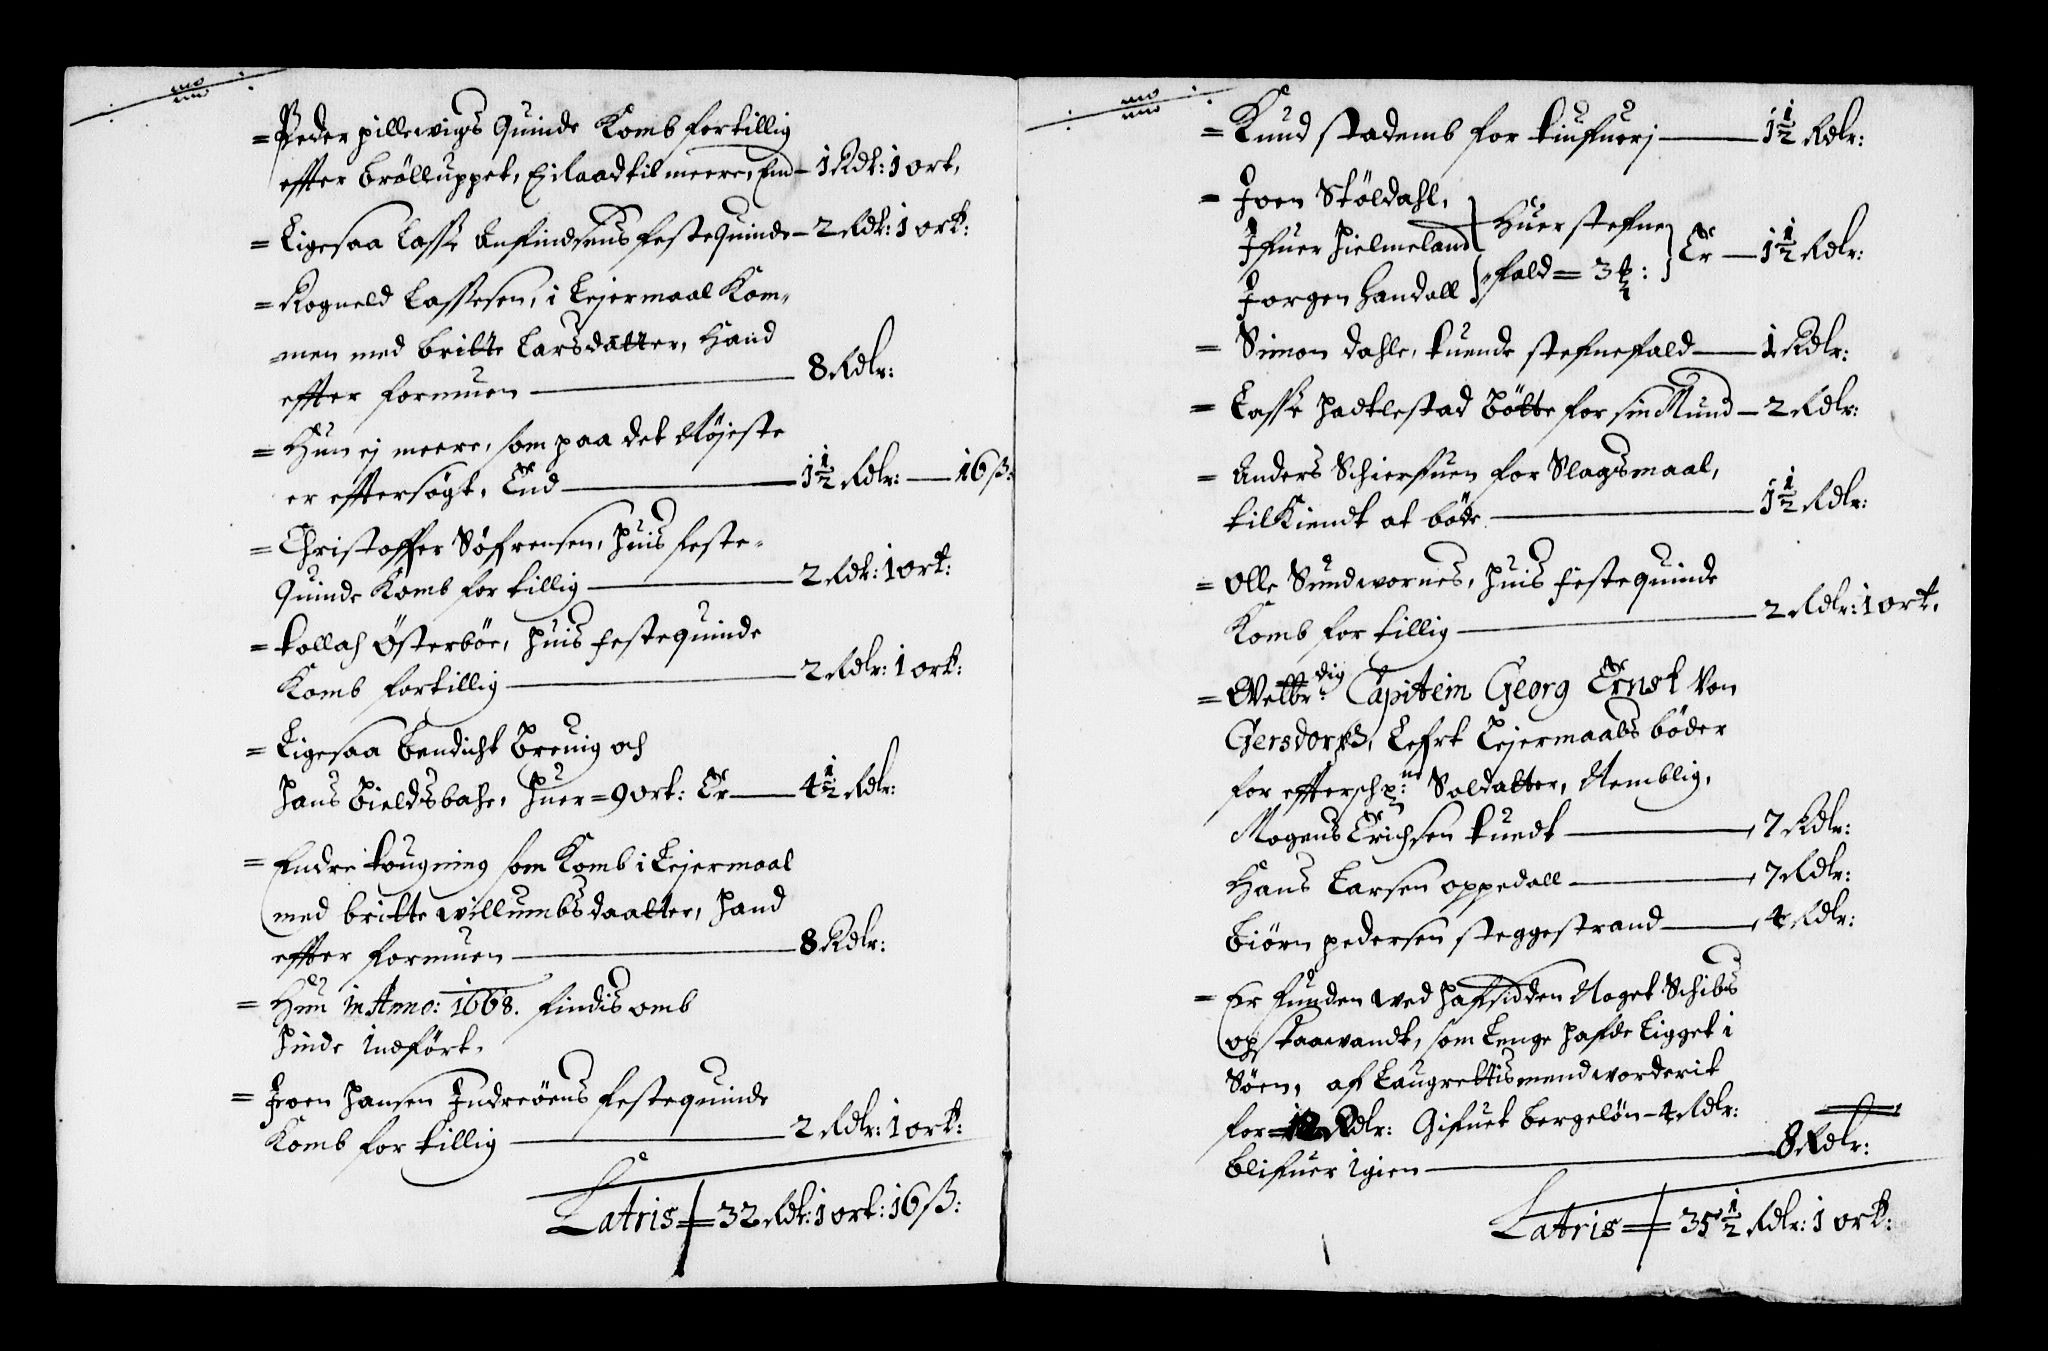 = Peder pillewigs Quinde Komb for tillig
effter brölluppet, Ei laad til meere, End – 1 Rdr: 1 ort,
= Ligesaa Lasse Anfindsens festequinde – 2 Rdr: 1 ort:
= Rogneld Lassesen, i Lejermaal Kom-
men med britte Larsdatter, Hand
effter formuen — 8 Rdlr:
= Hun ej meere, som paa det Nøjeste
er efftersøgt, End — 1½ Rdlr: — 16 ß:
= Christoffer Söfrensen, huis feste-
Quinde Komb for tillig — 2 Rdr: 1 ort:
= tollah Österböe, huis festequinde
Komb for tillig — 2 Rdlr: 1 ort:
= Ligesaa bendicht Breuig och
Hans Bieldsbache, huer = 9 ort: Er — 4½ Rdlr:
= Endre tougning som Komb i Lejermaal
med britte willumbsdaatter, Hand
effter formuen — 8 Rdlr:
= Hun in Anno: 1668. findis omb
hinde Indfört.
= Joen Hansen Indreöens festequinde
Komb for tillig — 2 Rdlr: 1 ort:
Latris = 32 Rdr: 1 ort: 16 ß:
= Knud stademb for tiufueri — 1½ Rdlr:
= Joen Stöldahl,
Ifuer Hielmeland
Jorgen handall
Huer stefne
fald = 3
Er — 1½ Rdlr:
= Simon dahle, tuende stefnefald — 1 Rdlr:
= Lasse Hatlestad bötte for sin Mund – 2 Rdlr:
= Anders Schierfuen for Slagsmaal,
tilkiendt at böde — 1½ Rdlr:
= Olle Sundwornes, huis festequinde
Komb for tillig — 2 Rdlr: 1 ort,
= Welbr:dig Capitein Georg Ernst Von
Gersdorff, Lefrt Lejermaals böder
for effterschr:ne Soldatter, Nemblig,
Mogens Erichsen tuedt — 7 Rdlr:
Hans Larsen oppedall — 7 Rdlr:
Biörn pedersen steggestrand — 4 Rdlr:
= Er funden wed Hafsidden Noget Schibs
op staawandt, som Lenge hafde Ligget i
Söen, af Laugrettismend worderit
for = 12 Rdlr: Gifuet bergelön – 4 Rdlr:
blifuer igien — 8 Rdlr:
Latris = 35½ Rdlr: 1 ort: